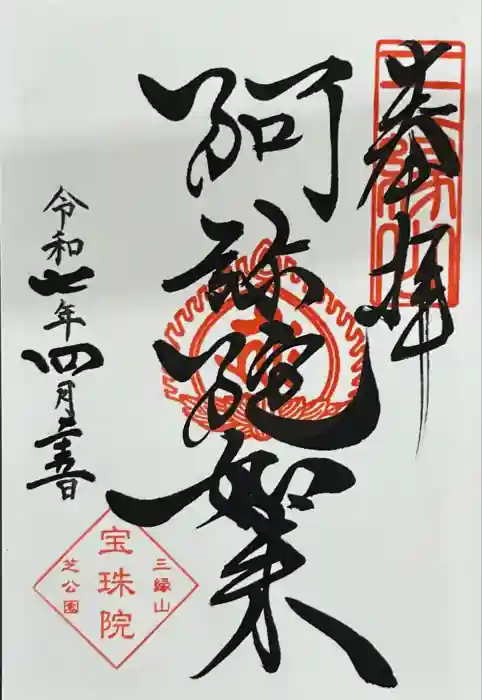 奉拝
阿弥陀如来
令和七年四月二十五日
三縁山
宝珠院
芝公園